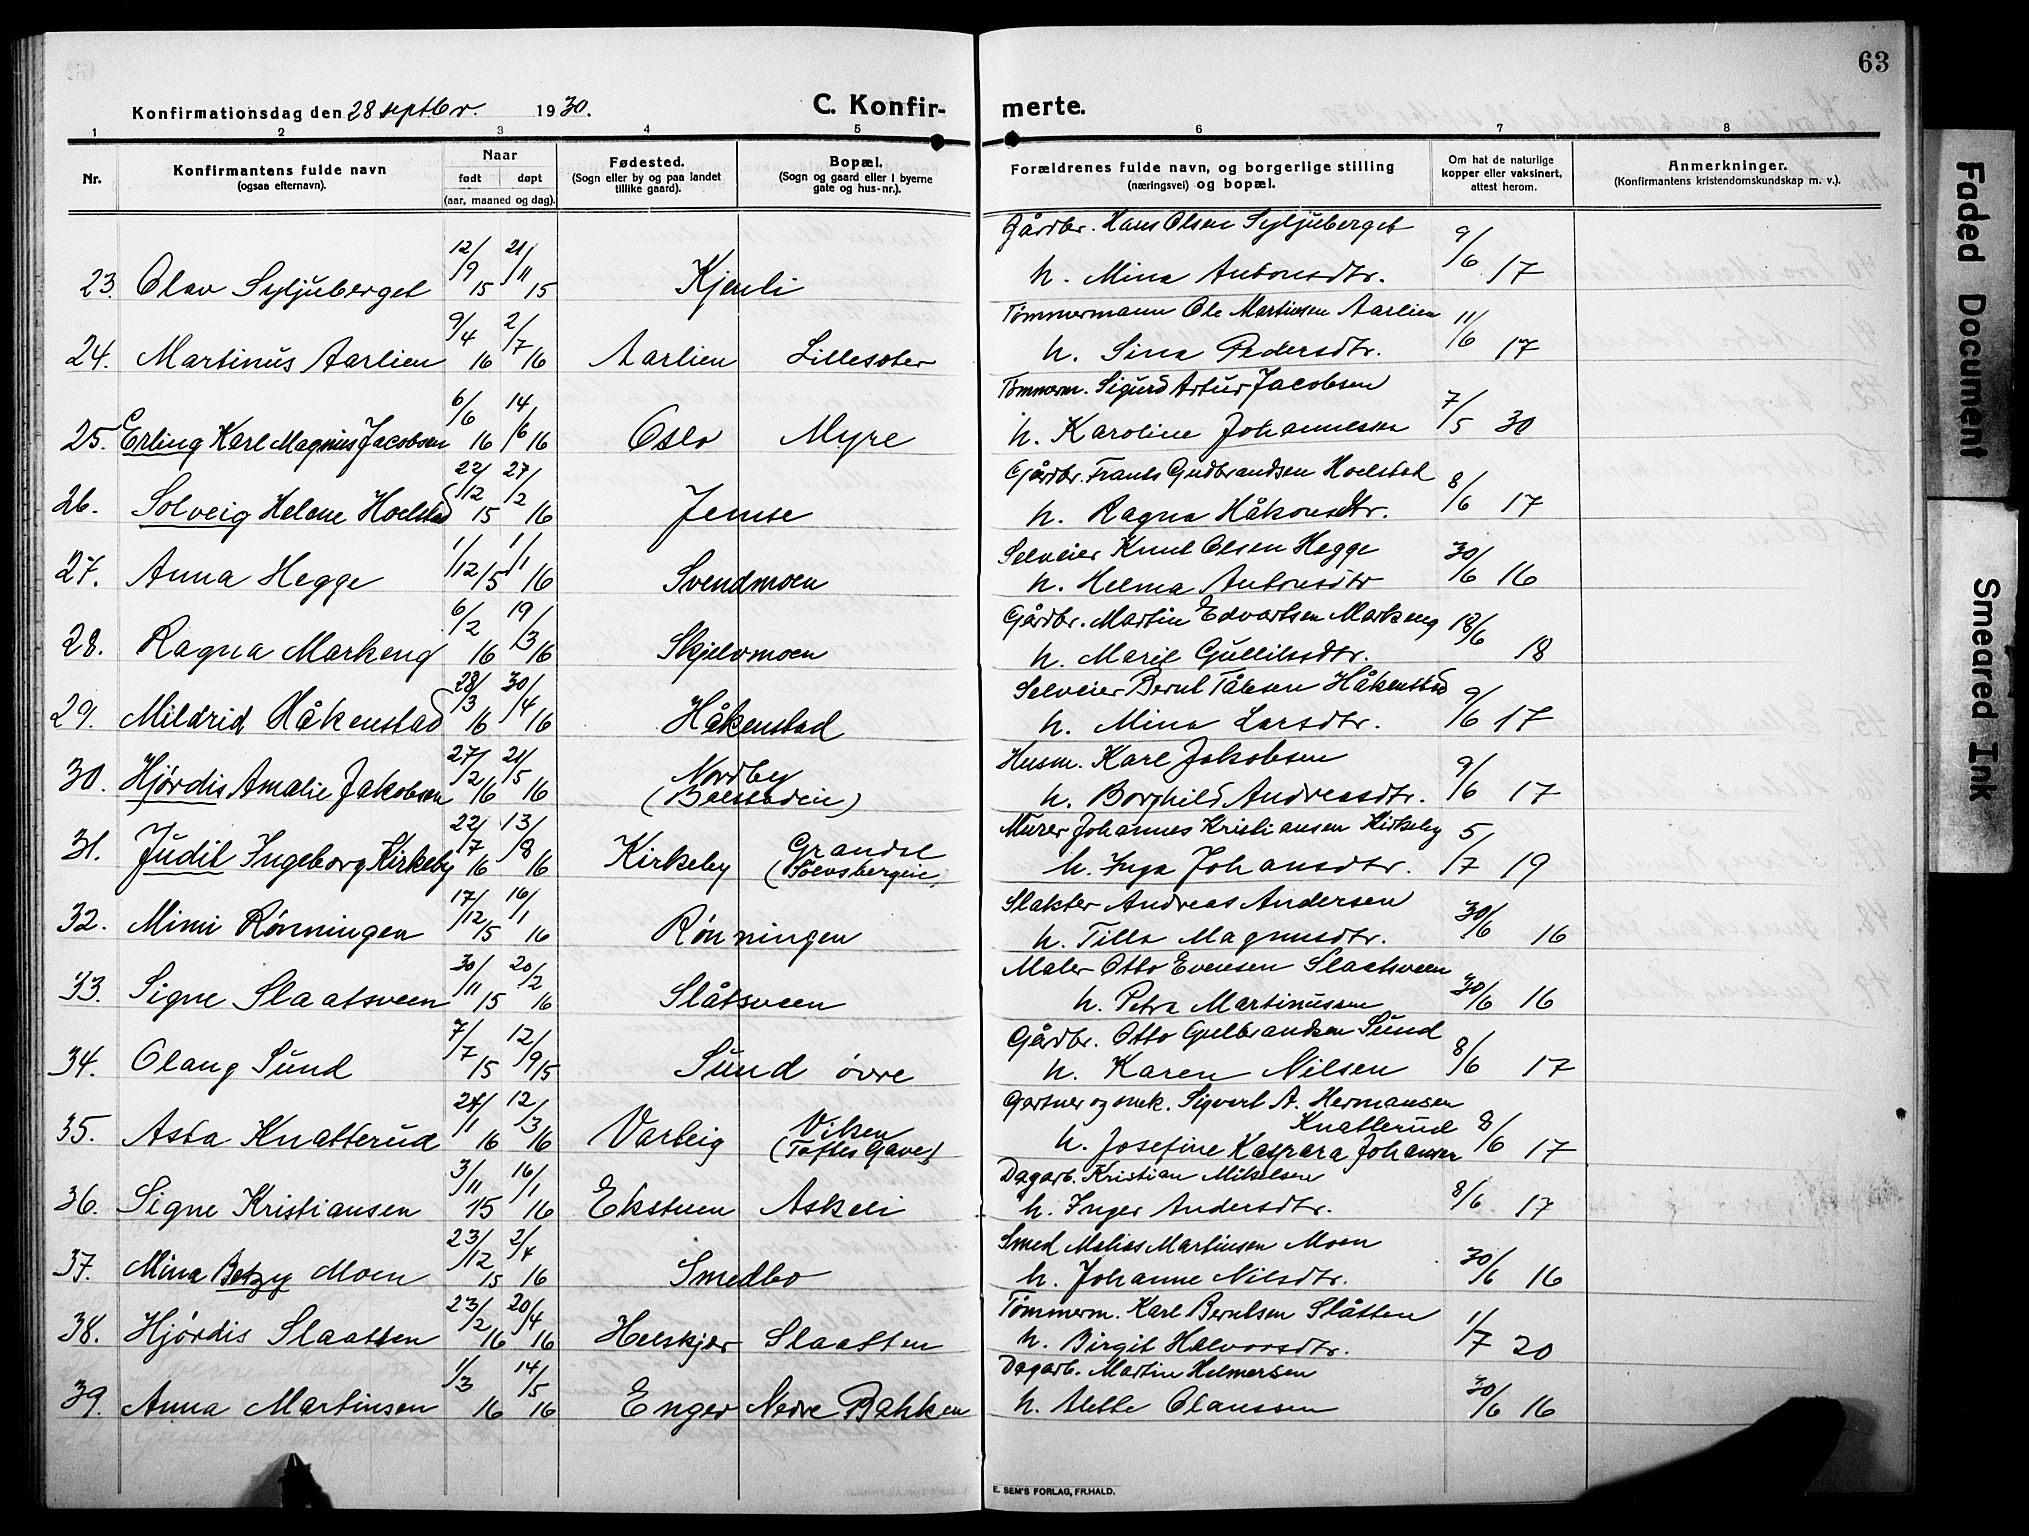 63
Konfirmationsdag den 28 septbr. 1930. C. Konfirmerte.
1 2 3 4 5 6 7 8
Nr. Konfirmantens fulde navn (ogsaa efternavn). Naar født døpt (aar, maaned og dag). Fødested. (Sogn eller by og paa landet tillike gaard). Bopæl. (Sogn og gaard eller i byerne gate og hus-nr.). Forældrenes fulde navn, og borgerlige stilling (næringsvei) og bopæl. Om hat de naturlige kopper eller vaksinert, attest herom. Anmerkninger. (Konfirmantens kristendomskundskap m. v.).
23. Olav Syljuberget 12/9 15 21/11 15 Kjenli Gårdbr. Hans Olsen Syljuberget
h. Mina Antonsdtr. 9/6 17
24. Martinus Aarlien 9/4 16 2/7 16 Aarlien Lillesæter Tømmermann Ole Martinsen Aarlien
h. Sina Pedersdtr. 11/6 17
25. Erling Karl Magnus Jacobsen 6/6 16 14/6 16 Oslo Myre Tømmerm. Sigurd Artur Jacobsen
h. Karoline Johannessen 7/5 30
26. Solveig Helene Hoelstad 22/12 15 27/2 16 Jemse Gårdbr. Frants Gudbrandsen Hoelstad
h. Ragna Håkonsdtr. 8/6 17
27. Anna Hegge 1/12 15 1/1 16 Svendmoen Selveier Knut Olsen Hegge
h. Helma Antonsdtr 30/6 16
28. Ragna Markeng 6/2 16 19/3 16 Skjelvmoen Gårdbr. Martin Edvartsen Markeng
h. Marie Gulliksdtr. 18/6 18
29. Mildrid Håkenstad 28/3 16 30/4 16 Håkenstad Selveier Bernt Tålesen Håkenstad
h. Mina Larsdtr. 9/6 17
30. Hjørdis Amalie Jakobsen 27/2 16 21/5 16 Nordby Husm. Karl Jakobsen
h. Borghild Andreasdtr. 9/6 17
31. Judit Ingeborg Kirkeby 22/7 16 13/8 16 Kirkeby Murer Johannes Kristiansen Kirkeby
h. Inga Johansdtr. 5/7 19
32. Mimi Rønningen 17/12 15 16/1 16 Rønningen Slakter Andreas Andersen
h. Tilla Magnusdtr. 30/6 16
33. Signe Slaatsveen 30/11 15 20/2 16 Slåtsveen Maler Otto Evensen Slaatsveen
h. Petra Martinussen 30/6 16
34. Olaug Sund 7/7 15 12/9 15 Sund øvre Gårdbr. Otto Gulbrandsen Sund
h. Karen Nilsen 8/6 17
35. Asta Knatterud 24/1 16 12/3 16 Varteig Viken (Toftes Gave) Gartner og snek. Sigvart A. Hermansen
Knatterud
h. Josefine Kaspara Johansen 8/6 17
36. Signe Kristiansen 3/11 15 16/1 16 Ekstuen Askeli Dagarb. Kristian Mikelsen
h. Inger Andersdtr. 8/6 17
37. Mina Betzy Moen 23/12 15 2/4 16 Smedbo Smed Matias Martinsen Moen
h. Johanne Nilsdtr. 30/6 16
38. Hjørdis Slaatten 23/2 16 20/4 16 Helskjær Slaatten Tømmerm. Karl Berntsen Slåtten
h. Birgit Halvorsdtr. 1/7 20
39. Anna Martinsen 1/3 16 14/5 16 Enger Nedre Bakken Dagarb. Martin Helmersen
h. Alette Olaussen 30/6 16
E. SEM'S FORLAG, FR.HALD.
Faded Document
Smeared Ink